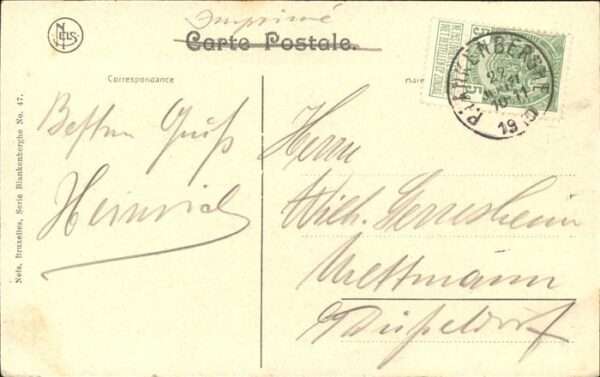 Imprimé
NELS
Carte Postale.
Correspondance
BLANKENBERGHE
27
10-11
19
5
Besten Gruß
Heinrich
Herrn
Wilh. Gerresheim
Mettmann
b/Düsseldorf
Nels, Bruxelles, Serie Blankenberghe No. 47.